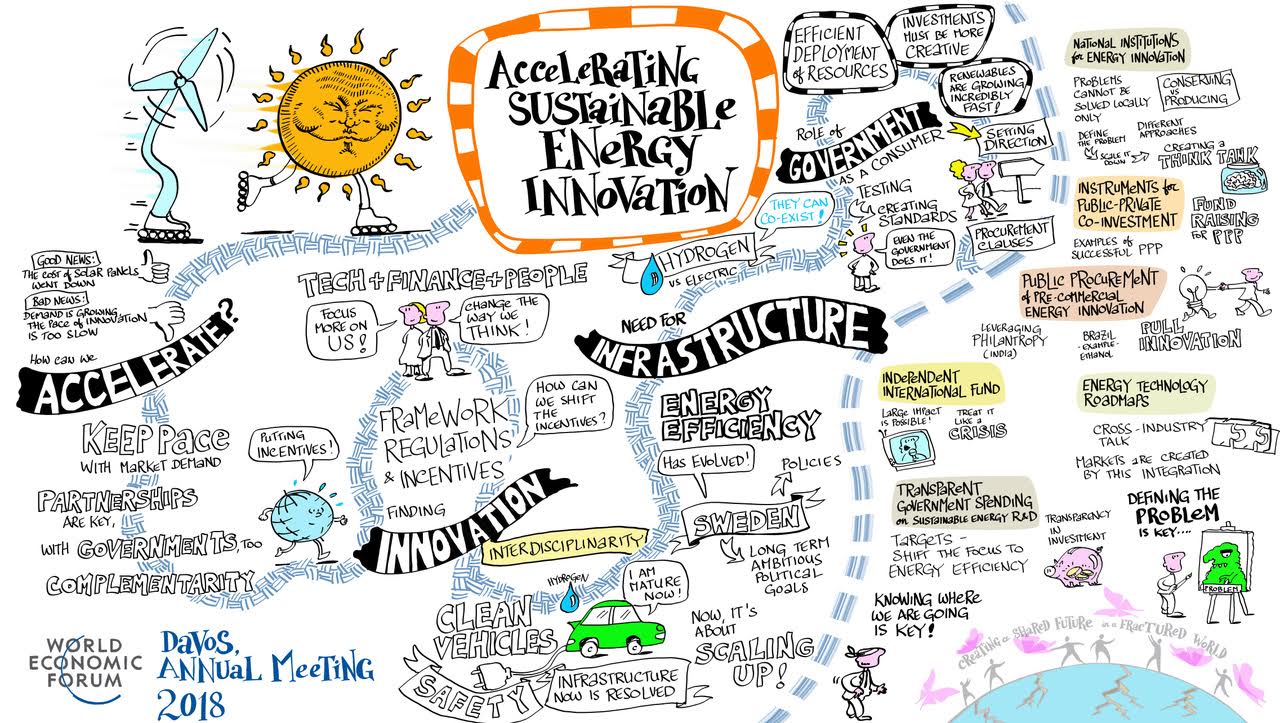 Accelerating
Sustainable
Energy
Innovation
GOOD NEWS:
THE COST OF SOLAR PANELS
WENT DOWN
BAD NEWS:
DEMAND IS GROWING,
THE PACE OF INNOVATION
IS TOO SLOW
HOW CAN WE
ACCELERATE?
KEEP PACE
WITH MARKET DEMAND
PARTNERSHIPS
ARE KEY,
WITH GOVERNMENTS, TOO
COMPLEMENTARITY
PUTTING
INCENTIVES!
TECH+FINANCE+PEOPLE
FOCUS
MORE ON
US!
CHANGE THE
WAY WE
THINK!
FRAMEWORK
REGULATIONS
& INCENTIVES
HOW CAN
WE SHIFT
THE
INCENTIVES?
FINDING
INNOVATION
INTERDISCIPLINARITY
HYDROGEN
CLEAN
VEHICLES
I AM
MATURE
NOW!
SAFETY
INFRASTRUCTURE
NOW IS RESOLVED
NEED FOR
INFRASTRUCTURE
HYDROGEN
VS ELECTRIC
THEY CAN
CO-EXIST!
ENERGY
EFFICIENCY
HAS EVOLVED!
POLICIES
SWEDEN
LONG TERM
AMBITIOUS
POLITICAL
GOALS
NOW, IT'S
ABOUT
SCALING
UP!
EFFICIENT
DEPLOYMENT
of RESOURCES
INVESTMENTS
MUST BE MORE
CREATIVE
RENEWABLES
ARE GROWING
INCREDIBLY
FAST!
ROLE of
GOVERNMENT
AS A CONSUMER
TESTING
CREATING
STANDARDS
SETTING
DIRECTION
EVEN THE
GOVERNMENT
DOES IT!
PROCUREMENT
CLAUSES
NATIONAL INSTITUTIONS
for ENERGY INNOVATION
PROBLEMS
CANNOT BE
SOLVED LOCALLY
ONLY
CONSERVING
VS
PRODUCING
DEFINE
THE PROBLEM
SCALE IT
DOWN
DIFFERENT
APPROACHES
CREATING A
THINK TANK
INSTRUMENTS for
PUBLIC-PRIVATE
CO-INVESTMENT
EXAMPLES of
SUCCESSFUL PPP
FUND
RAISING
FOR PPP
PUBLIC PROCUREMENT
of PRE-COMMERCIAL
ENERGY INNOVATION
LEVERAGING
PHILANTHROPY
(INDIA)
BRAZIL
-EXAMPLE-
ETHANOL
PULL
INNOVATION
INDEPENDENT
INTERNATIONAL FUND
LARGE IMPACT
IS POSSIBLE!
TREAT IT
LIKE A
CRISIS
ENERGY TECHNOLOGY
ROADMAPS
CROSS-INDUSTRY
TALK
MARKETS ARE CREATED
BY THIS INTEGRATION
TRANSPARENT
GOVERNMENT SPENDING
on SUSTAINABLE ENERGY R&D
TARGETS -
SHIFT THE FOCUS TO
ENERGY EFFICIENCY
TRANSPARENCY
IN
INVESTMENT
DEFINING THE
PROBLEM
IS KEY....
PROBLEM
KNOWING WHERE
WE ARE GOING
IS KEY!
CREATING a SHARED FUTURE in a FRACTURED WORLD
WORLD
ECONOMIC
FORUM
DAVOS,
ANNUAL MEETING
2018